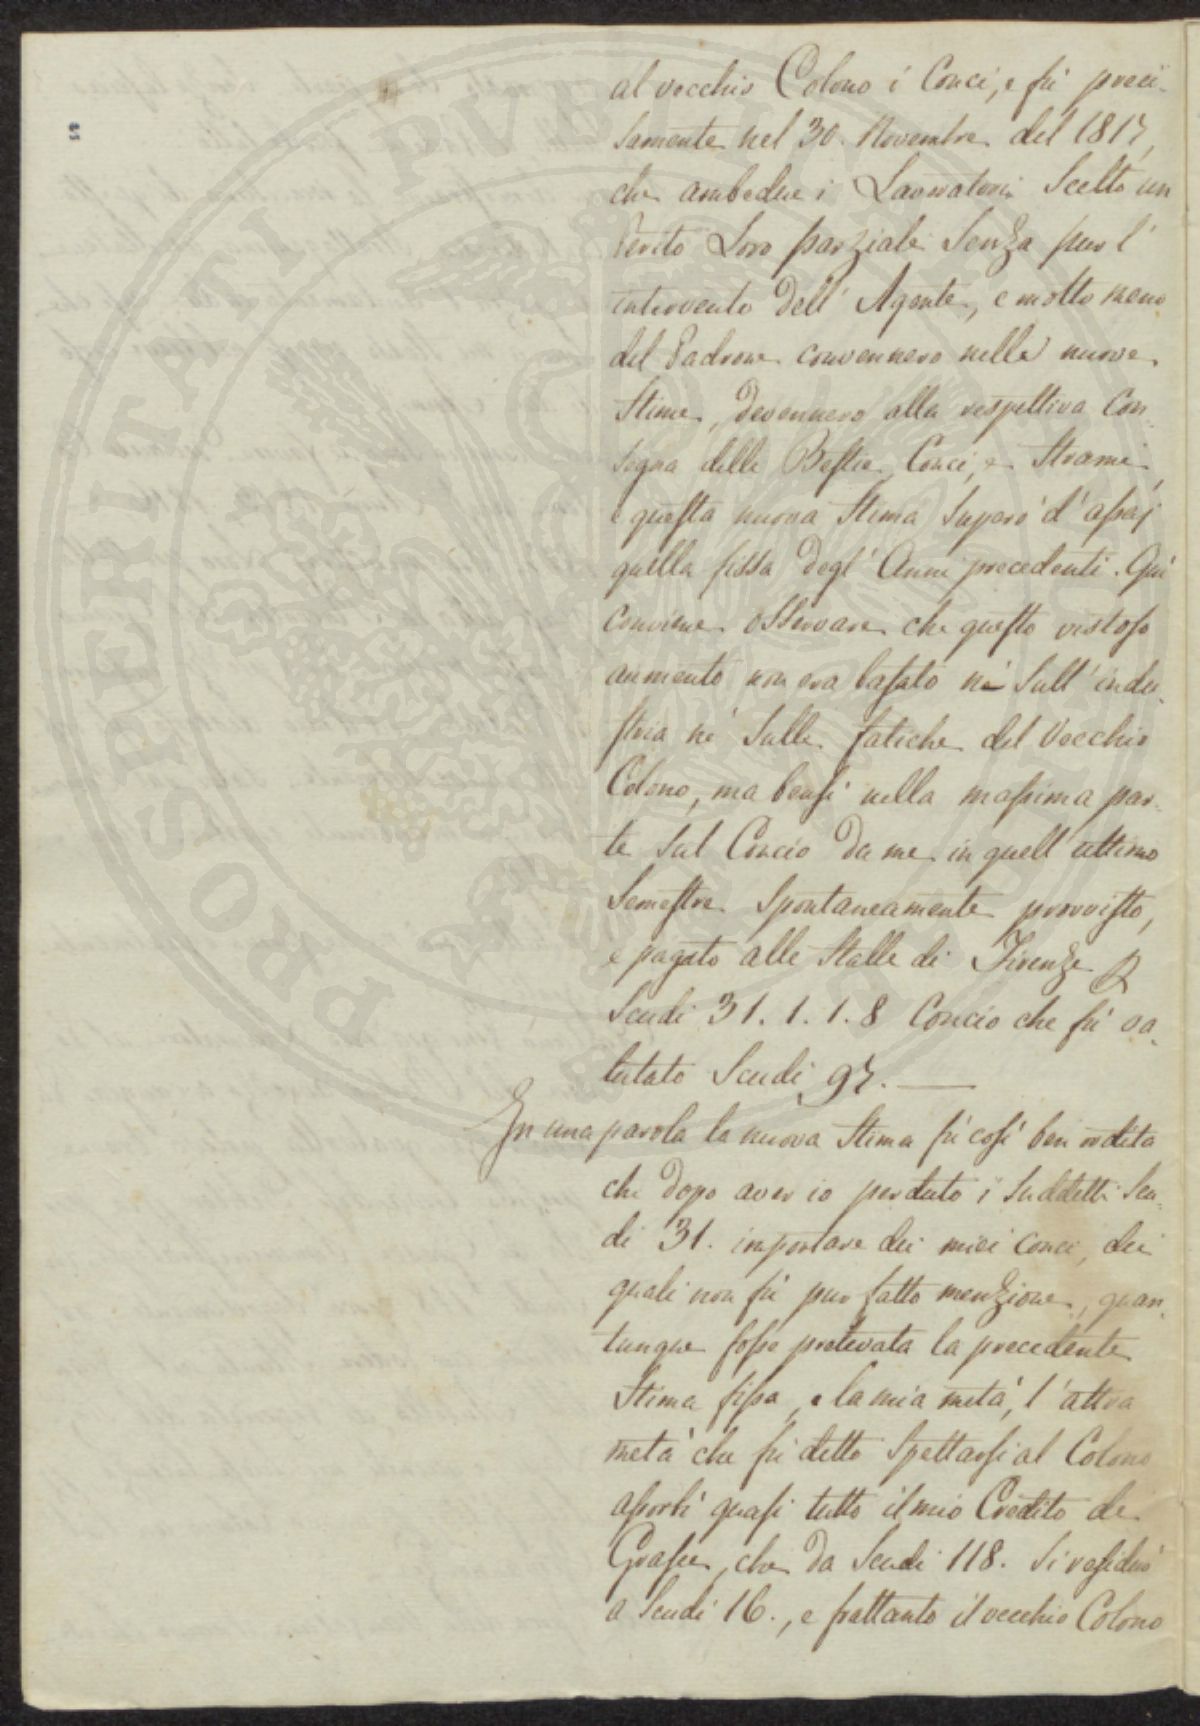 al vecchio Colono i Conci, e fù preci-
samente nel 30. Novembre del 1817,
che ambedue i Lavoratori Scelto un
Perito Loro parziale Senza pur l'
intervento dell' Agente, e molto meno
del Padrone convennero nelle nuove
Stime, devennero alla respettiva Con-
segna delle Bestie, Conci, e Strami,
e questa nuova Stima Superò d'assaj
quella fissa degl' Anni precedenti. Qui
conviene osservare che questo vistoso
aumento non era basato nè Sull' indu-
stria nè Sulle fatiche del Vecchio
Colono, ma bensì nella massima par-
te Sul Concio da me in quell' ultimo
Semestre Spontaneamente provvisto,
e pagato alle Stalle di Firenze
Scudi 31. 1. 1. 8 Concio che fù va-
lutato Scudi 97.
In una parola la nuova Stima fù così ben ordita
che dopo aver io perduto i Suddetti Scu-
di 31. importare dei miei conci, dei
quali non fù pur fatto menzione, quan-
tunque fosse prelevata la precedente
Stima fissa, e la mia metà, l'altra
metà che fù detto Spettarsi al Colono
assorbì quasi tutto il mio Credito de
Grasce, che da Scudi 118. Si residuò
a Scudi 16., e frattanto il vecchio Colono
PROSPERITATI PVBLICAE